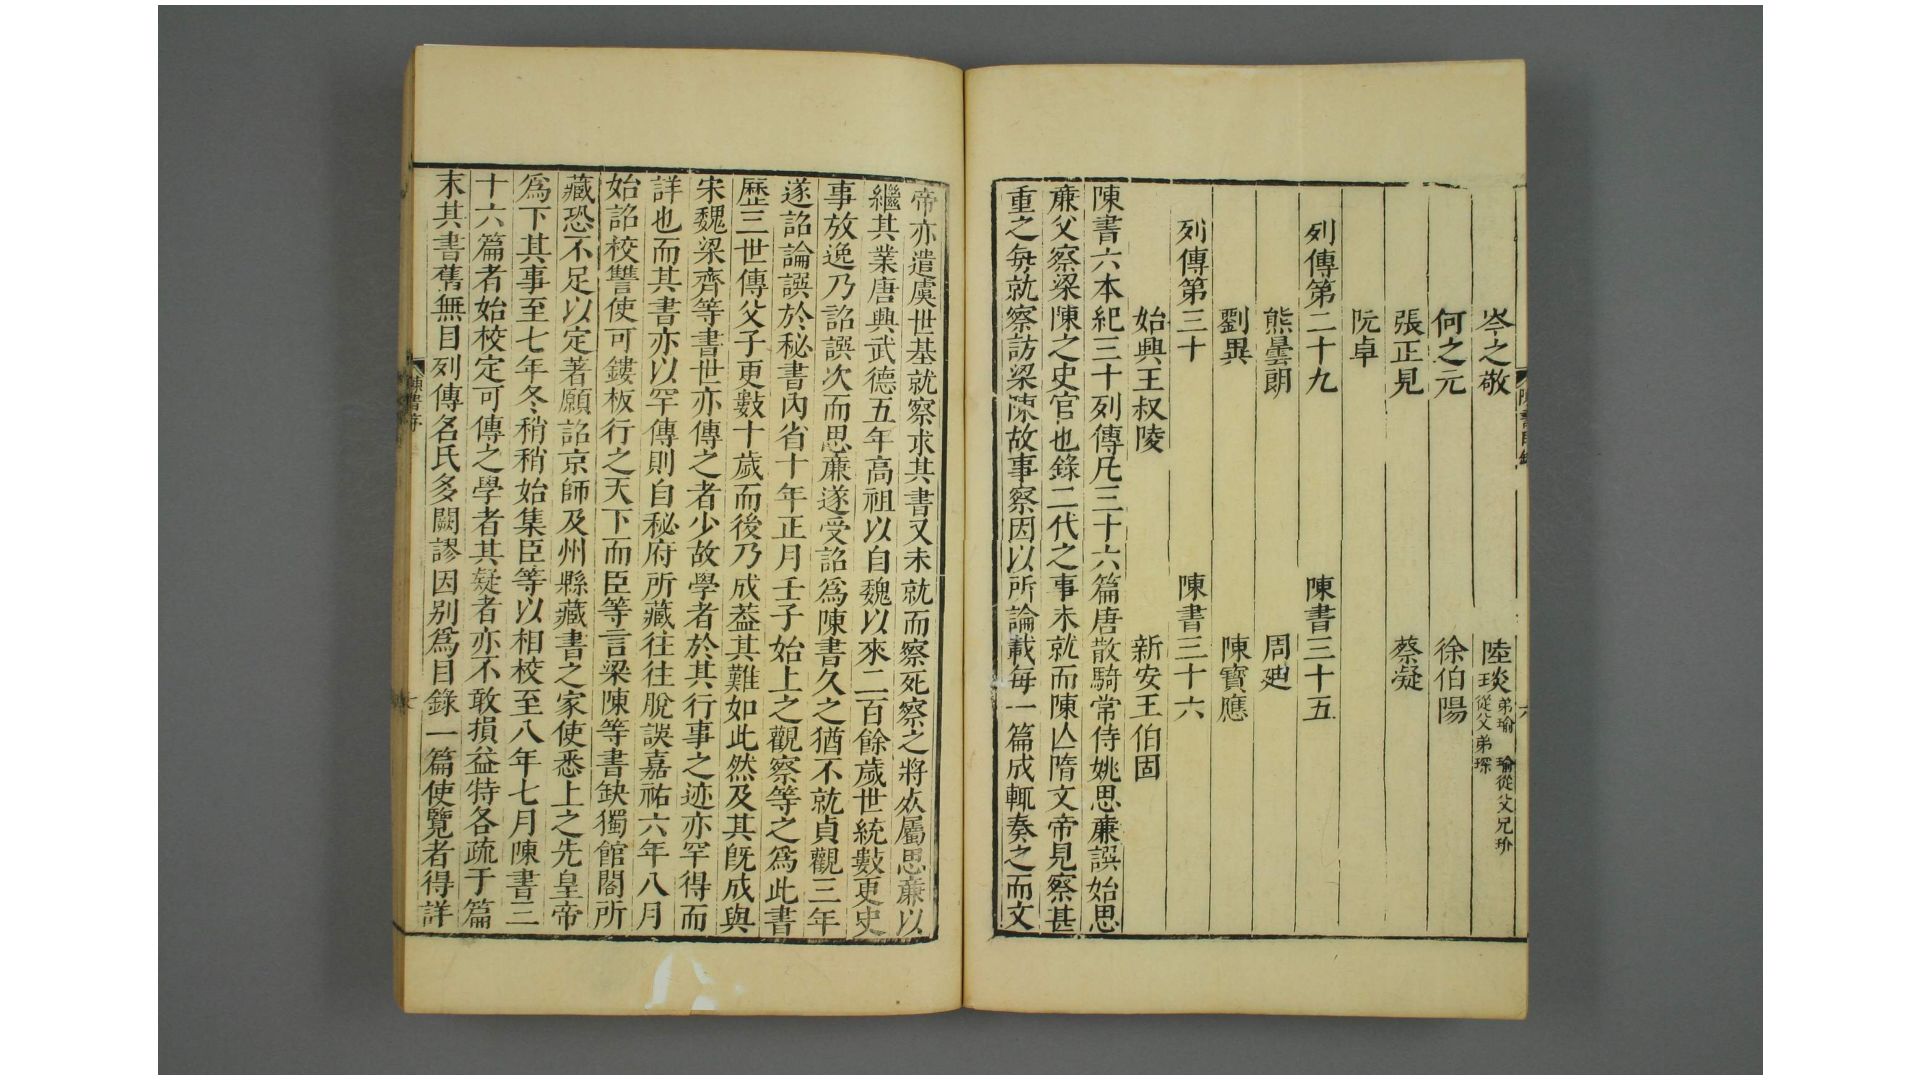 岑之敬　陸琰 弟瑜　瑜從父兄玠 玠從父弟琛
何之元　徐伯陽
張正見　蔡凝
阮卓
列傳第二十九　陳書三十五
熊曇朗　周廸
劉異　陳寶應
列傳第三十　陳書三十六
始興王叔陵　新安王伯固
陳書六本紀三十列傳凡三十六篇唐散騎常侍姚思亷譔始思
亷父察梁陳之史官也錄二代之事未就而陳亾隋文帝見察甚
重之每就察訪梁陳故事察因以所論載每一篇成輒奏之而文
帝亦遣虞世基就察求其書又未就而察死察之將死屬思亷以
繼其業唐興武德五年高祖以自魏以來二百餘歲世統數更史
事放逸乃詔譔次而思亷遂受詔爲陳書久之猶不就貞觀三年
遂詔論譔於秘書內省十年正月壬子始上之觀察等之爲此書
歷三世傳父子更數十歲而後乃成葢其難如此然及其旣成與
宋魏梁齊等書世亦傳之者少故學者於其行事之迹亦罕得而
詳也而其書亦以罕傳則自秘府所藏往往脫誤嘉祐六年八月
始詔校讐使可鏤板行之天下而臣等言梁陳等書缺獨館閣所
藏恐不足以定著願詔京師及州縣藏書之家使悉上之先皇帝
爲下其事至七年冬稍稍始集臣等以相校至八年七月陳書三
十六篇者始校定可傳之學者其疑者亦不敢損益特各疏于篇
末其書舊無目列傳名氏多闕謬因別爲目錄一篇使覽者得詳